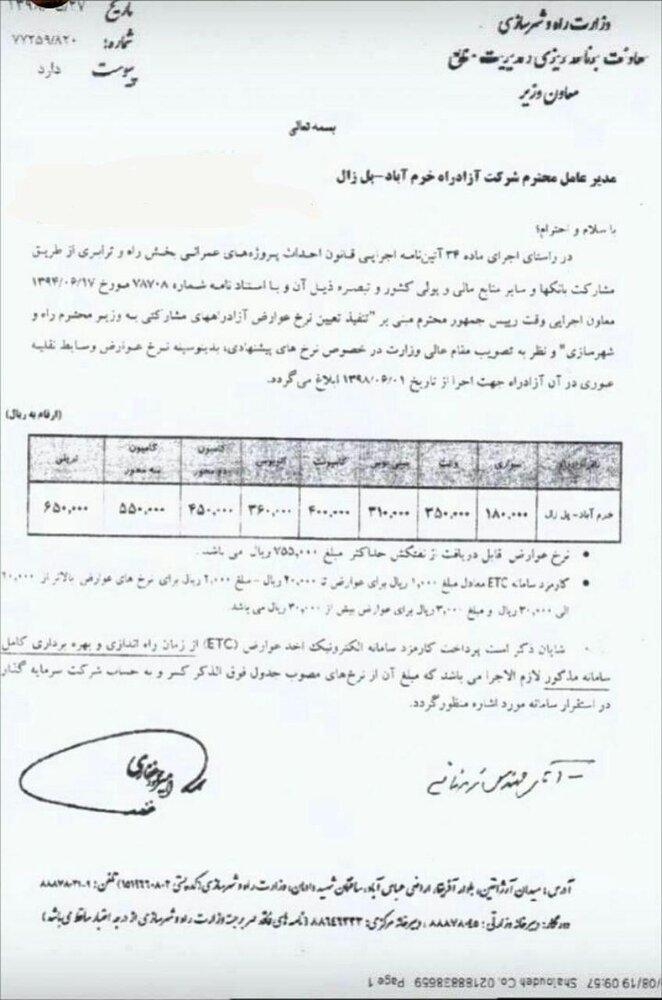 وزارت راه و شهرسازی
معاونت برنامه ریزی و مدیریت منابع
معاون وزیر
تاریخ
شماره: ۷۷۲۵۹/۸۲۰
پیوست دارد
بسمه تعالی
مدیر عامل محترم شرکت آزادراه خرم آباد-پل زال
با سلام و احترام؛
در راستای اجرای ماده ۳۴ آئین‌نامه اجرایی قانون احداث پروژه‌های عمرانی بخش راه و ترابری از طریق
مشارکت بانکها و سایر منابع مالی و پولی کشور و تبصره ذیل آن و با استناد نامه شماره ۷۸۷۰۸ مورخ ۱۳۹۴/۰۶/۱۷
معاون اجرایی وقت رییس جمهور محترم مبنی بر "تنفیذ تعیین نرخ عوارض آزادراههای مشارکتی به وزیر محترم راه و
شهرسازی" و نظر به تصویب مقام عالی وزارت در خصوص نرخ های پیشنهادی، بدینوسیله نرخ عوارض وسایط نقلیه
عبوری در آن آزادراه جهت اجرا از تاریخ ۱۳۹۸/۰۶/۰۱ ابلاغ می‌گردد.
(ارقام به ریال)
نام آزادراه سواری وانت مینی بوس کامیونت اتوبوس کامیون دو محور کامیون سه محور تریلی
خرم آباد- پل زال ۱۸۰,۰۰۰ ۲۵۰,۰۰۰ ۳۱۰,۰۰۰ ۴۰۰,۰۰۰ ۳۶۰,۰۰۰ ۴۵۰,۰۰۰ ۵۵۰,۰۰۰ ۶۵۰,۰۰۰
• نرخ عوارض قابل دریافت از نفتکش حداکثر مبلغ ۷۵۵,۰۰۰ ریال می باشد.
• کارمزد سامانه ETC معادل مبلغ ۱,۰۰۰ ریال برای عوارض تا ۲۰,۰۰۰ ریال - مبلغ ۲,۰۰۰ ریال برای نرخ های عوارض بالاتر از ۲۰,۰۰۰
الی ۳۰,۰۰۰ ریال و مبلغ ۳,۰۰۰ ریال برای عوارض بیش از ۳۰,۰۰۰ ریال می باشد
شایان ذکر است پرداخت کارمزد سامانه الکترونیک اخذ عوارض (ETC) از زمان راه اندازی و بهره برداری کامل
سامانه مذکور لازم الاجرا می باشد که مبلغ آن از نرخ‌های مصوب جدول فوق الذکر کسر و به حساب شرکت سرمایه گذار
در استقرار سامانه مورد اشاره منظور گردد.
آدرس: میدان آرژانتین، بلوار آفریقا، اراضی عباس آباد، ساختمان شهید دادمان، وزارت راه و شهرسازی (کدپستی ۱۵۱۹۶۶۰۸۰۲) تلفن: ۸۸۸۷۸۰۳۱-۹
دورنگار: دبیرخانه وزارتی: ۸۸۸۷۸۰۴۵، دبیرخانه مرکزی: ۸۸۶۴۶۳۳۳ (نامه های فاقد مهر برجسته وزارت راه و شهرسازی از درجه اعتبار ساقط می باشد)
/08/19 09:57 Shaloudeh Co. 02188838659 Page 1